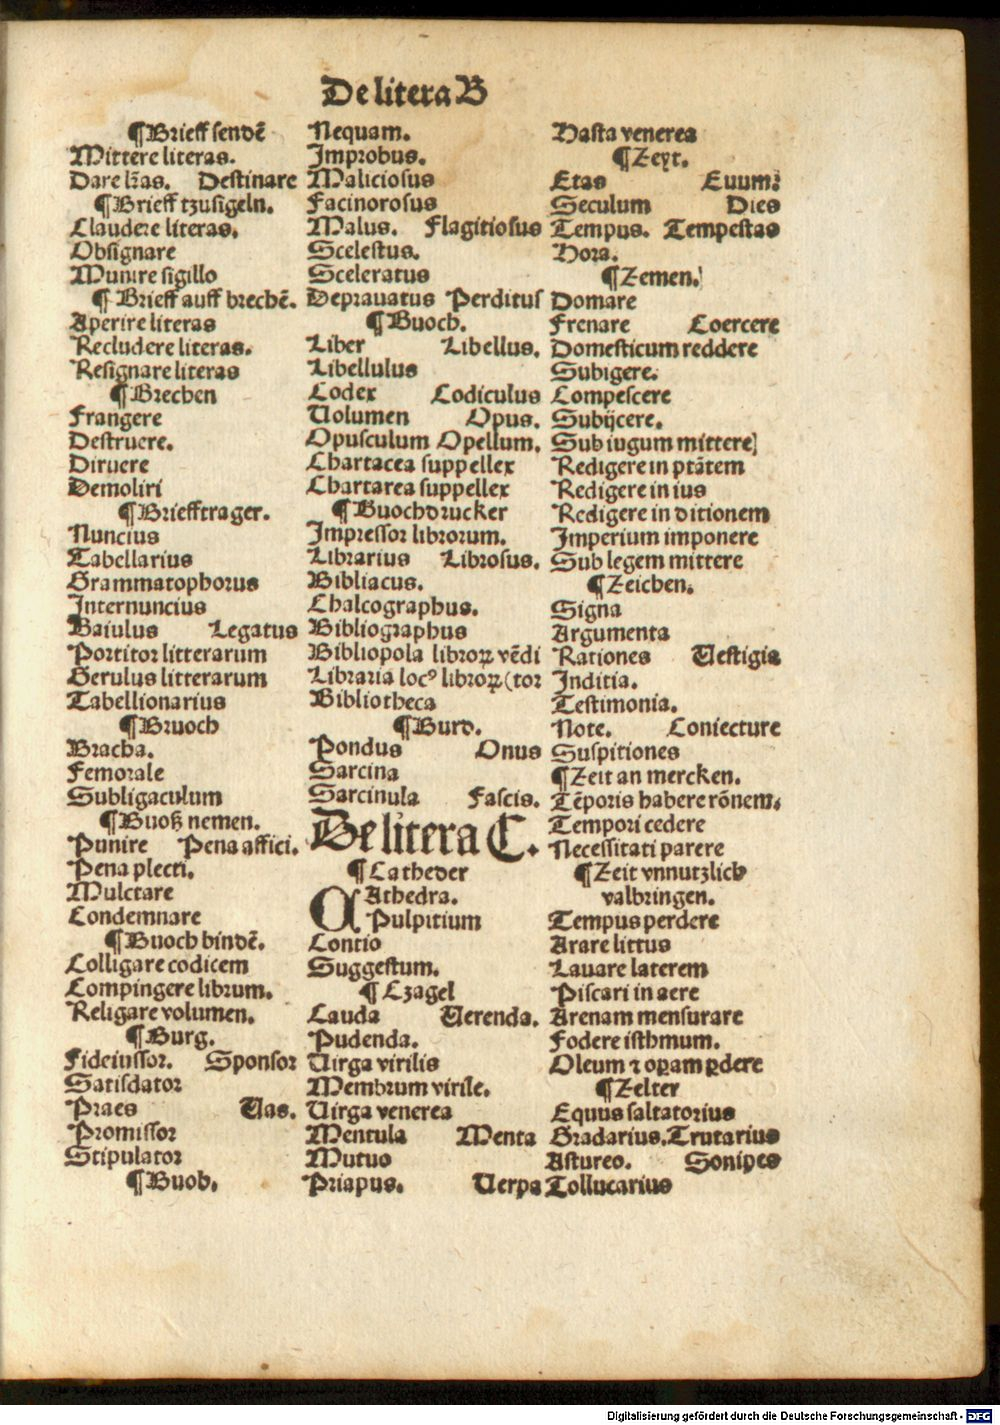 De litera B
¶Brieff sendē
Mittere literas.
Dare lr̄as. Destinare
¶Brieff tzusigeln.
Claudere literas.
Obsignare
Munire sigillo
¶Brieff auff brechē.
Aperire literas
Recludere literas.
Resignare literas
¶Brechen
Frangere
Destruere.
Diruere
Demoliri
¶Briefftrager.
Nuncius
Tabellarius
Grammatophorus
Internuncius
Baiulus Legatus
Portitor litterarum
Gerulus litterarum
Tabellionarius
¶Bruoch
Bracha.
Femorale
Subligaculum
¶Buoß nemen.
Punire Pena affici.
Pena plecti.
Mulctare
Condemnare
¶Buoch bindē.
Colligare codicem
Compingere librum.
Religare volumen.
¶Burg.
Fideiussor. Sponsor
Satisdator
Praes Uas.
Promissor
Stipulator
¶Buob.
Nequam.
Improbus.
Maliciosus
Facinorosus
Malus. Flagitiosus
Scelestus.
Sceleratus
Deprauatus Perditus
¶Buoch.
Liber Libellus.
Libellulus
Codex Codiculus
Uolumen Opus.
Opusculum Opellum.
Chartacea suppellex
Chartarea suppellex
¶Buochdrucker
Impressor librorum.
Librarius Librosus.
Bibliacus.
Chalcographus.
Bibliographus
Bibliopola libroꝝ vēdi
Libraria locꝰ libroꝝ (tor
Bibliotheca
¶Burd.
Pondus Onus
Sarcina
Sarcinula Fascis.
De litera C.
¶Catheder
CAthedra.
Pulpitium
Contio
Suggestum.
¶Czagel
Cauda Uerenda.
Pudenda.
Uirga virilis
Membrum virile.
Uirga venerea
Mentula Menta
Mutuo
Priapus. Uerpa
Hasta venerea
¶Zeyt.
Etas Euum:
Seculum Dies
Tempus. Tempestas
Hora.
¶Zemen.
Domare
Frenare Coercere
Domesticum reddere
Subigere.
Compescere
Subijcere.
Sub iugum mittere
Redigere in ptātem
Redigere in ius
Redigere in ditionem
Imperium imponere
Sub legem mittere
¶Zeichen.
Signa
Argumenta
Rationes Uestigia
Inditia.
Testimonia.
Note. Coniecture
Suspitiones
¶Zeit an mercken.
Tēporis habere rōnem.
Tempori cedere
Necessitati parere
¶Zeit vnnutzlich
valbringen.
Tempus perdere
Arare littus
Lauare laterem
Piscari in aere
Arenam mensurare
Fodere isthmum.
Oleum ⁊ oꝑam ꝑdere
¶Zelter
Equus saltatorius
Gradarius. Trutarius
Astureo. Sonipes
Tollucarius
Digitalisierung gefördert durch die Deutsche Forschungsgemeinschaft - DFG